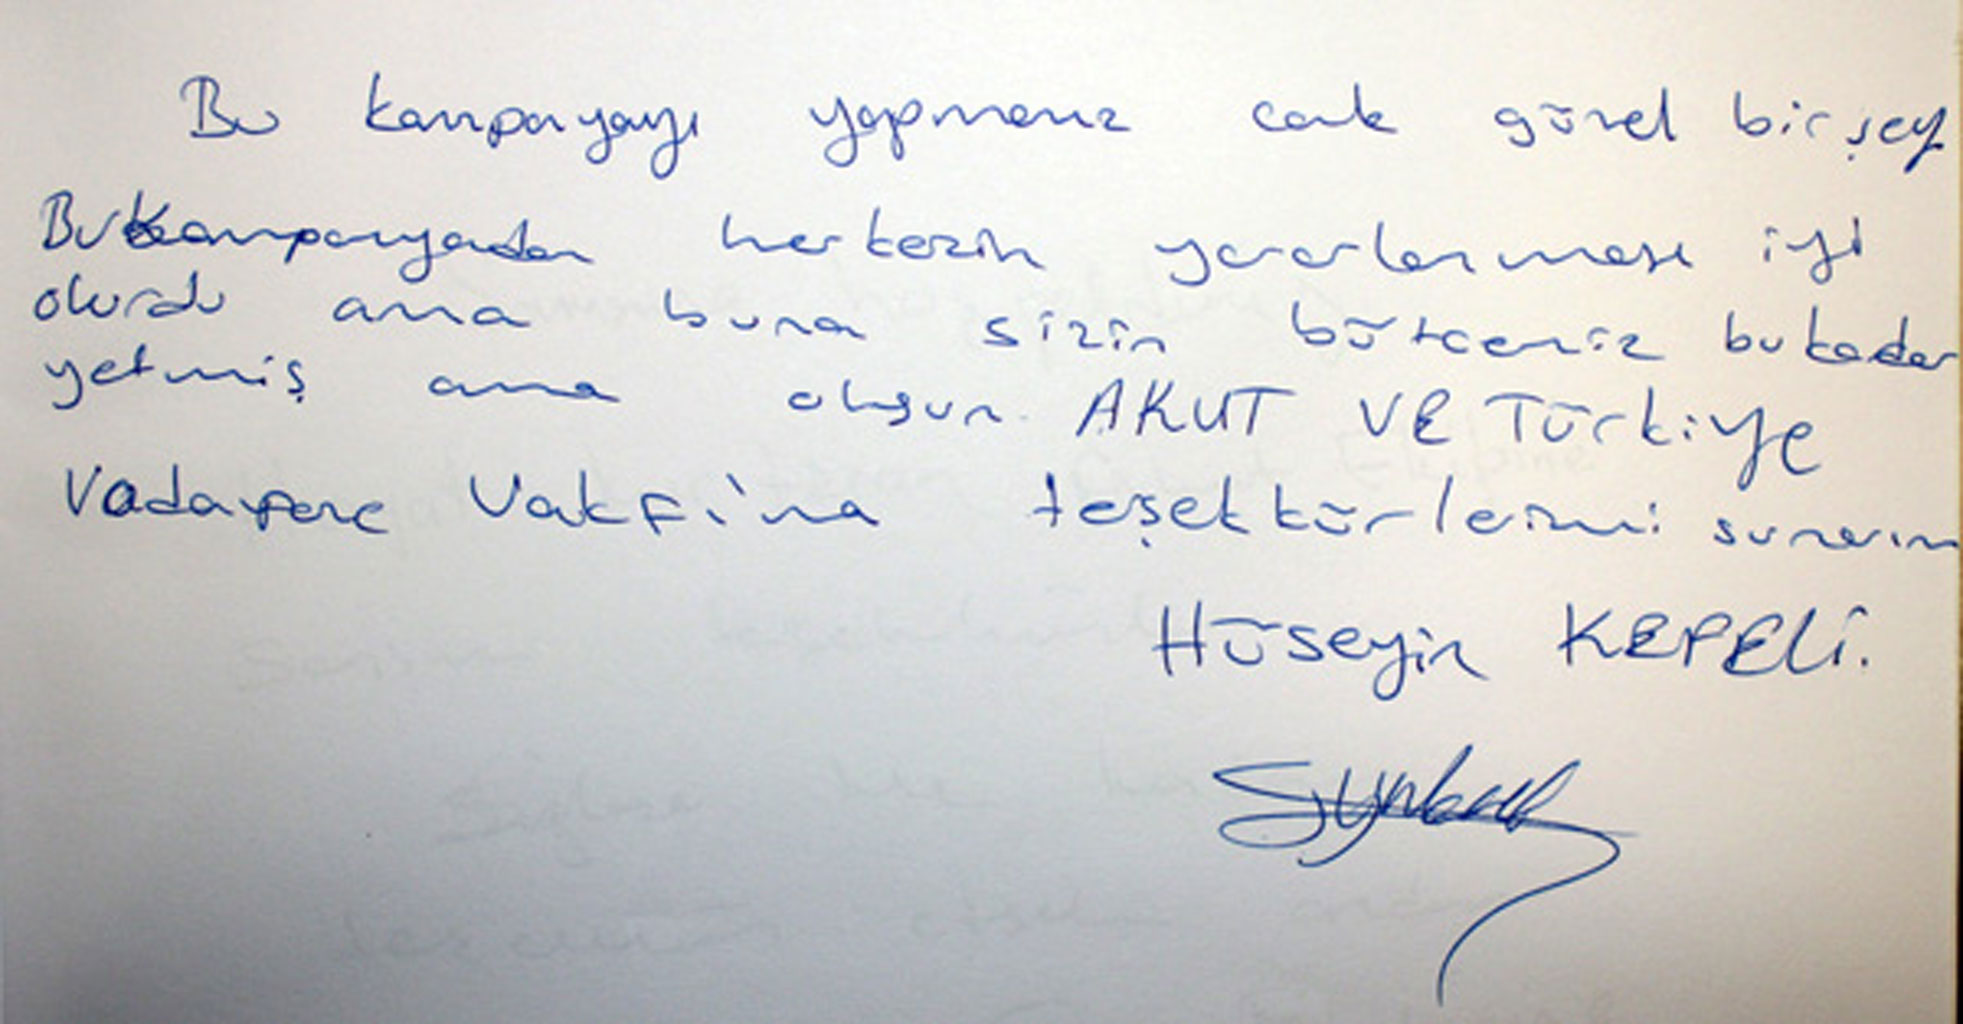 Bu kampanyayı yapmanız cok güzel bir şey
Bu kampanyadan herkezin yararlanması iyi
olurdu ama buna sizin bütceniz bu kadar
yetmiş ama olsun. AKUT VE Türkiye
Vodafone Vakfı'na teşekkürlerimi sunarım
Hüseyin KEPELİ.